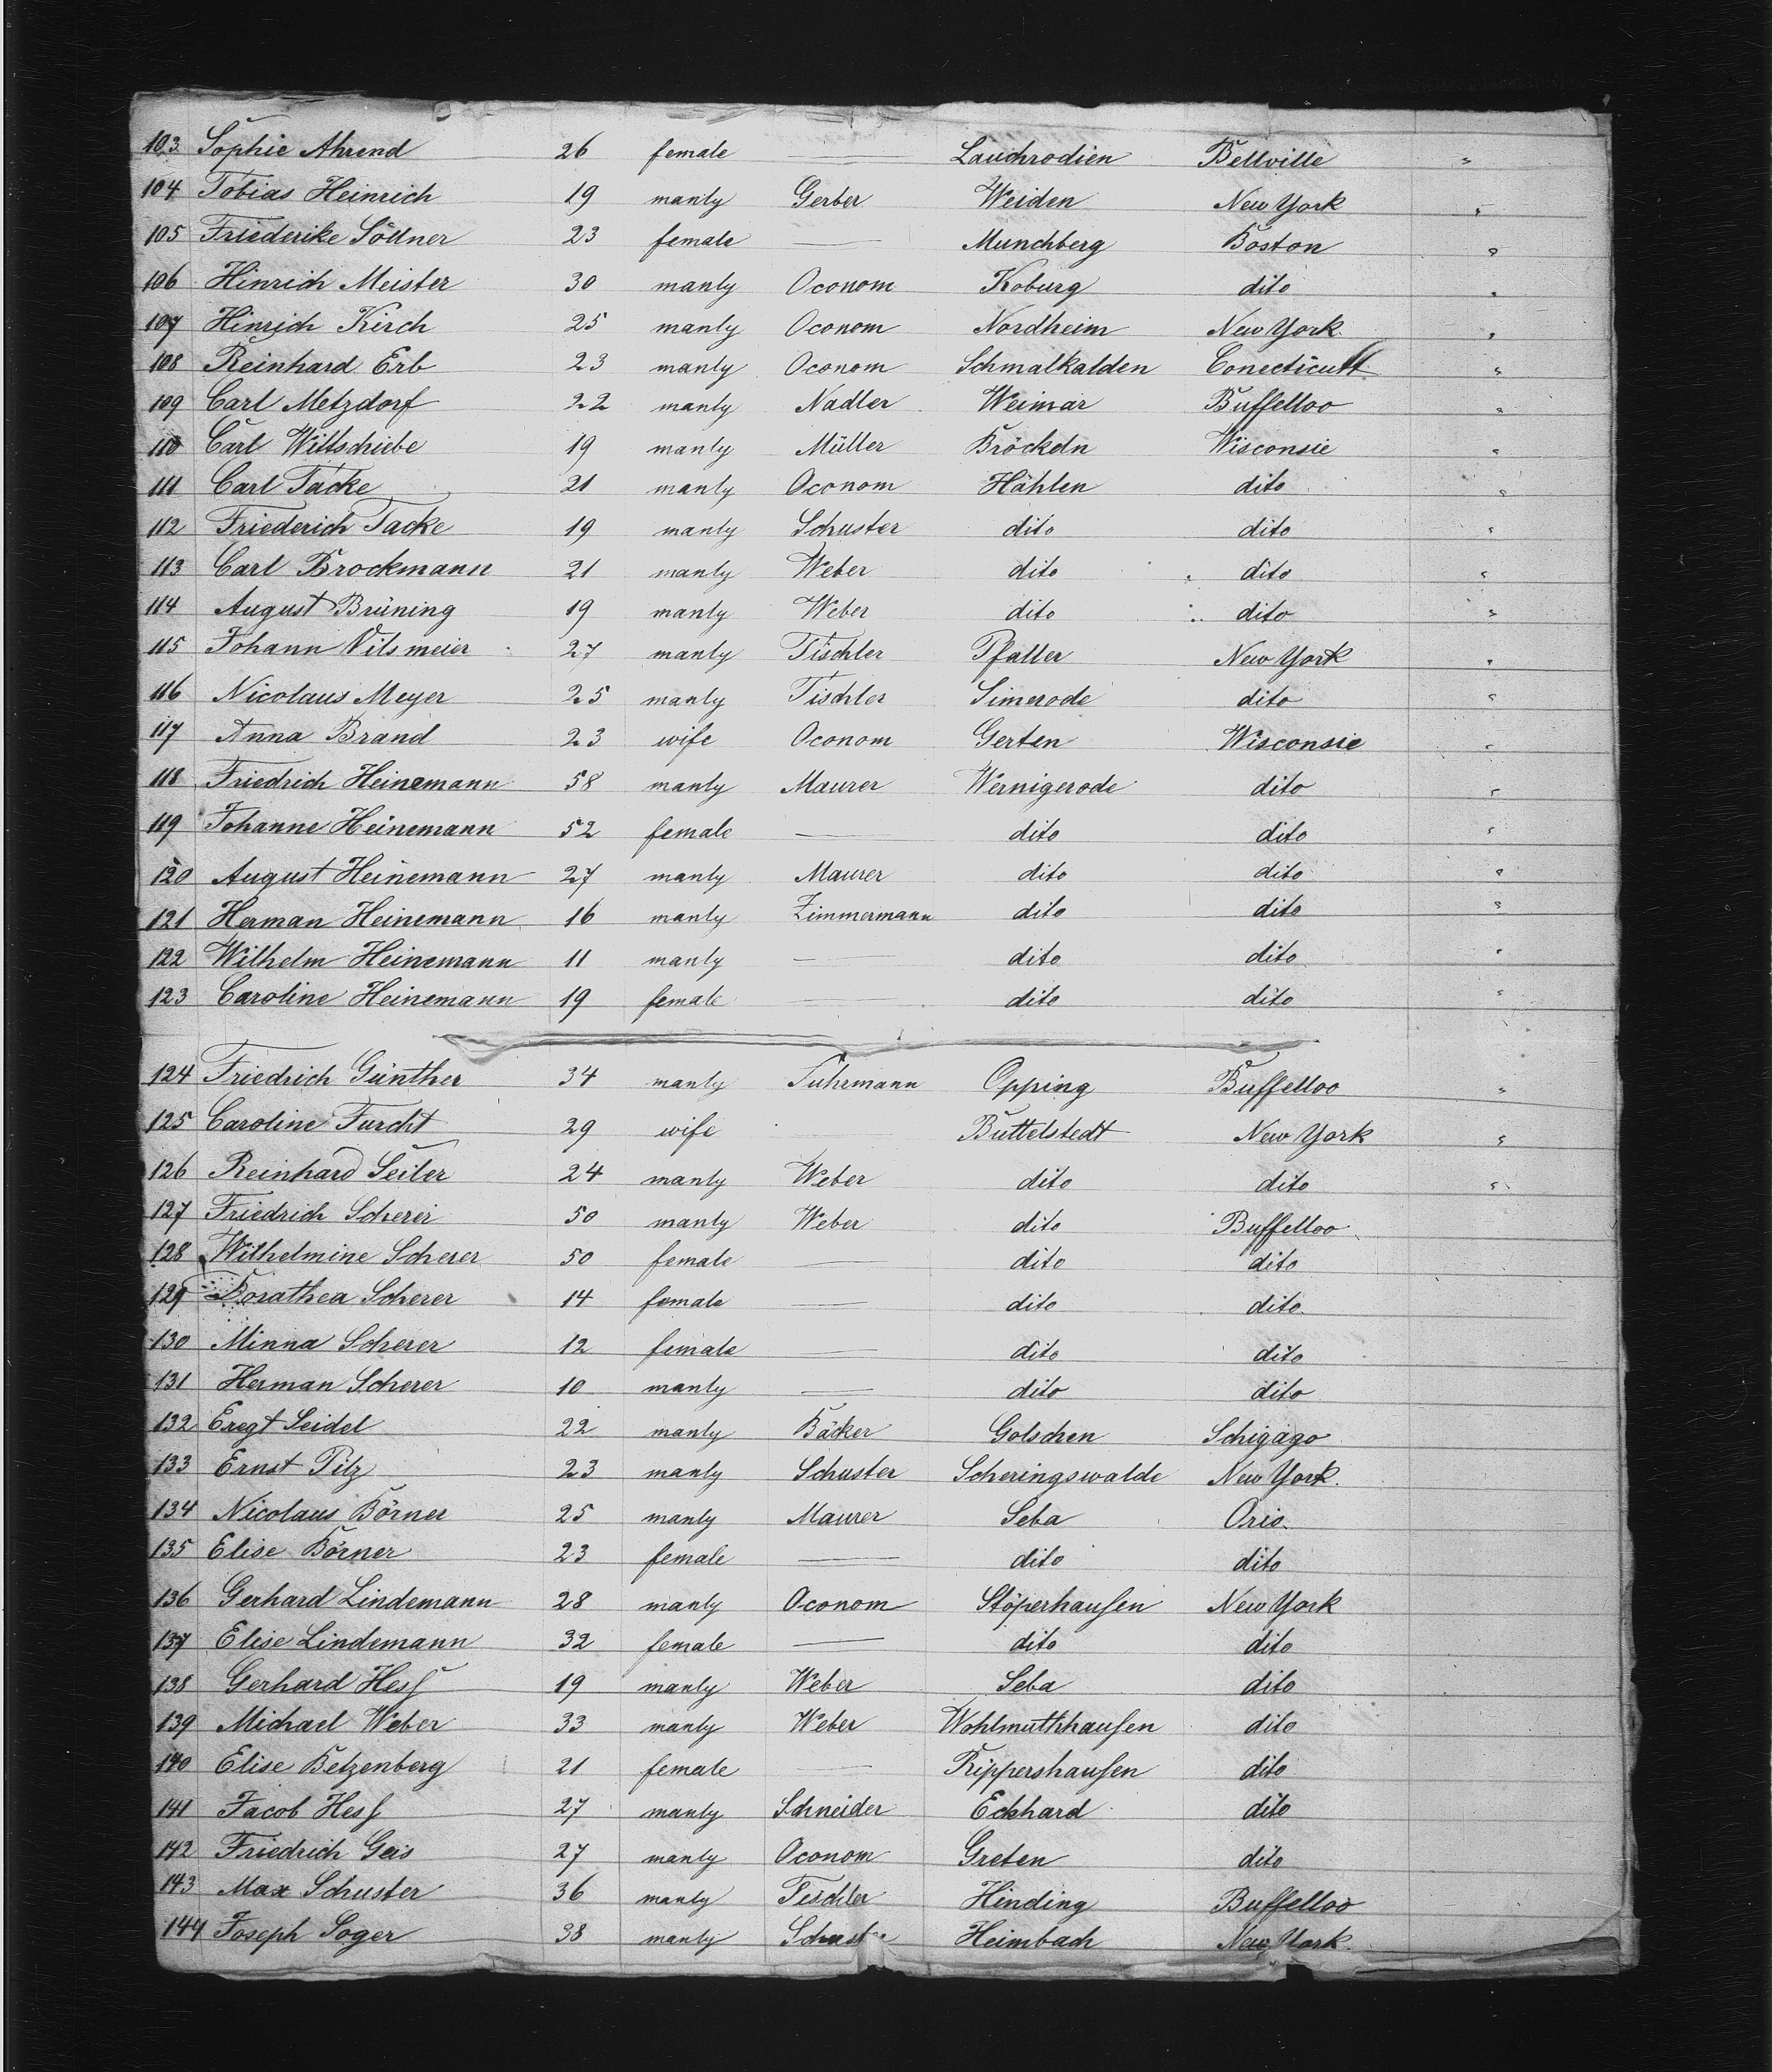 103 Sophie Ahrend 26 female — Lauchrodien Bellville "
104 Tobias Heinrich 19 manly Gerber Weiden New York "
105 Friederike Söllner 23 female — Munchberg Boston "
106 Hinrich Meister 30 manly Oconom Koburg dito "
107 Hinrich Kirch 25 manly Oconom Nordheim New York "
108 Reinhard Erb 23 manly Oconom Schmalkalden Conecticutt "
109 Carl Metzdorf 22 manly Nadler Weimar Buffelloo "
110 Carl Wittschiebe 19 manly Müller Bröckeln Wisconsie "
111 Carl Tacke 21 manly Oconom Hählen dito "
112 Friederich Tacke 19 manly Schuster dito dito "
113 Carl Brockmann 21 manly Weber dito dito "
114 August Brüning 19 manly Weber dito dito "
115 Johann Vilsmeier 27 manly Tischler Pfatter New York "
116 Nicolaus Meyer 25 manly Tischler Simerode dito "
117 Anna Brand 23 wife Oconom Gerten Wisconsie "
118 Friedrich Heinemann 58 manly Maurer Wernigerode dito "
119 Johanne Heinemann 52 female — dito dito "
120 August Heinemann 27 manly Maurer dito dito "
121 Herman Heinemann 16 manly Zimmermann dito dito "
122 Wilhelm Heinemann 11 manly — dito dito "
123 Caroline Heinemann 19 female — dito dito "
124 Friedrich Günther 34 manly Fuhrmann Opping Buffelloo "
125 Caroline Furcht 29 wife — Buttelstedt New York "
126 Reinhard Seiler 24 manly Weber dito dito "
127 Friedrich Scherer 50 manly Weber dito Buffelloo
128 Wilhelmine Scherer 50 female — dito dito
129 Dorathea Scherer 14 female — dito dito
130 Minna Scherer 12 female — dito dito
131 Herman Scherer 10 manly — dito dito
132 Eregt Seidel 22 manly Bäcker Golschen Schigago
133 Ernst Pilz 23 manly Schuster Scheringswalde New York
134 Nicolaus Börner 25 manly Maurer Seba Orio
135 Elise Börner 23 female — dito dito
136 Gerhard Lindemann 28 manly Oconom Stöperhausen New York
137 Elise Lindemann 32 female — dito dito
138 Gerhard Hess 19 manly Weber Seba dito
139 Michael Weber 33 manly Weber Wohlmuthhausen dito
140 Elise Betzenberg 21 female — Rippershausen dito
141 Jacob Hess 27 manly Schneider Eckhard dito
142 Friedrich Geis 27 manly Oconom Greten dito
143 Max Schuster 36 manly Tischler Hinding Buffelloo
144 Joseph Soger 38 manly Schuster Heimbach New York